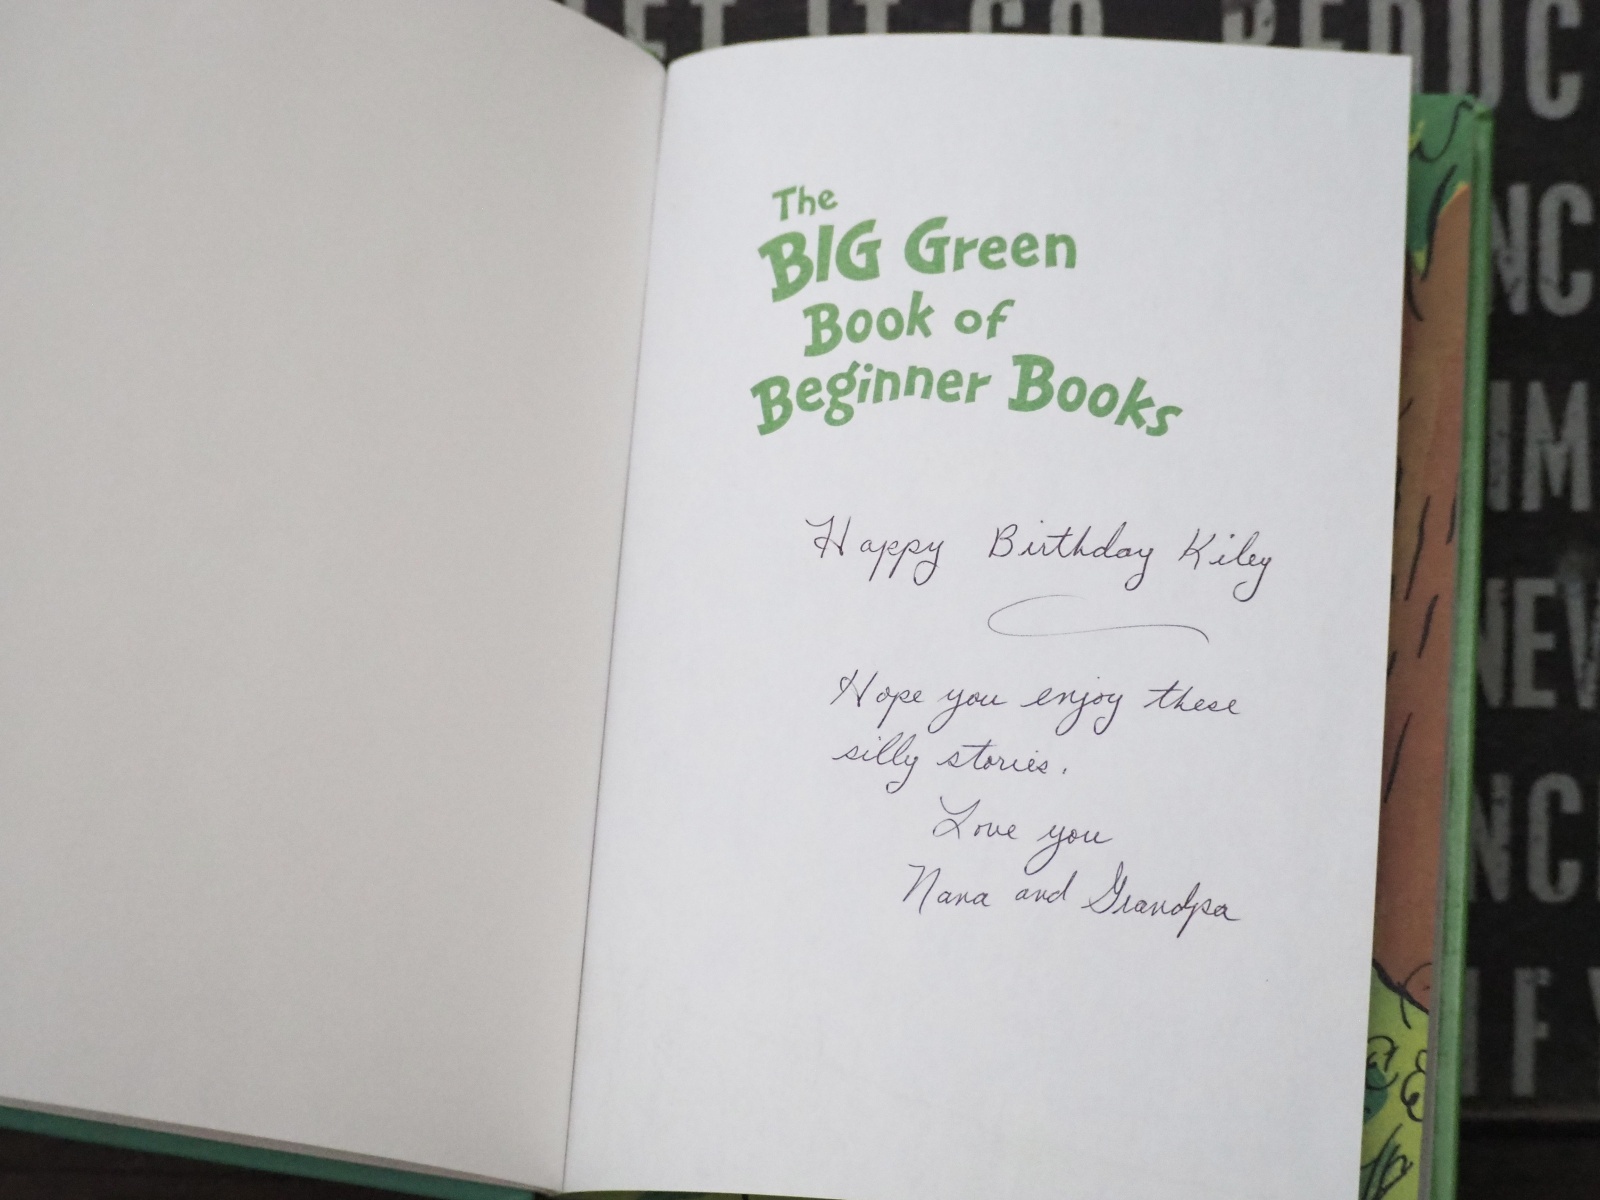 The
BIG Green
Book of
Beginner Books
Happy Birthday Kiley
Hope you enjoy these
silly stories.
Love you
Nana and Grandpa
LET IT GO REDUC
NC
IM
NEV
NC
IF